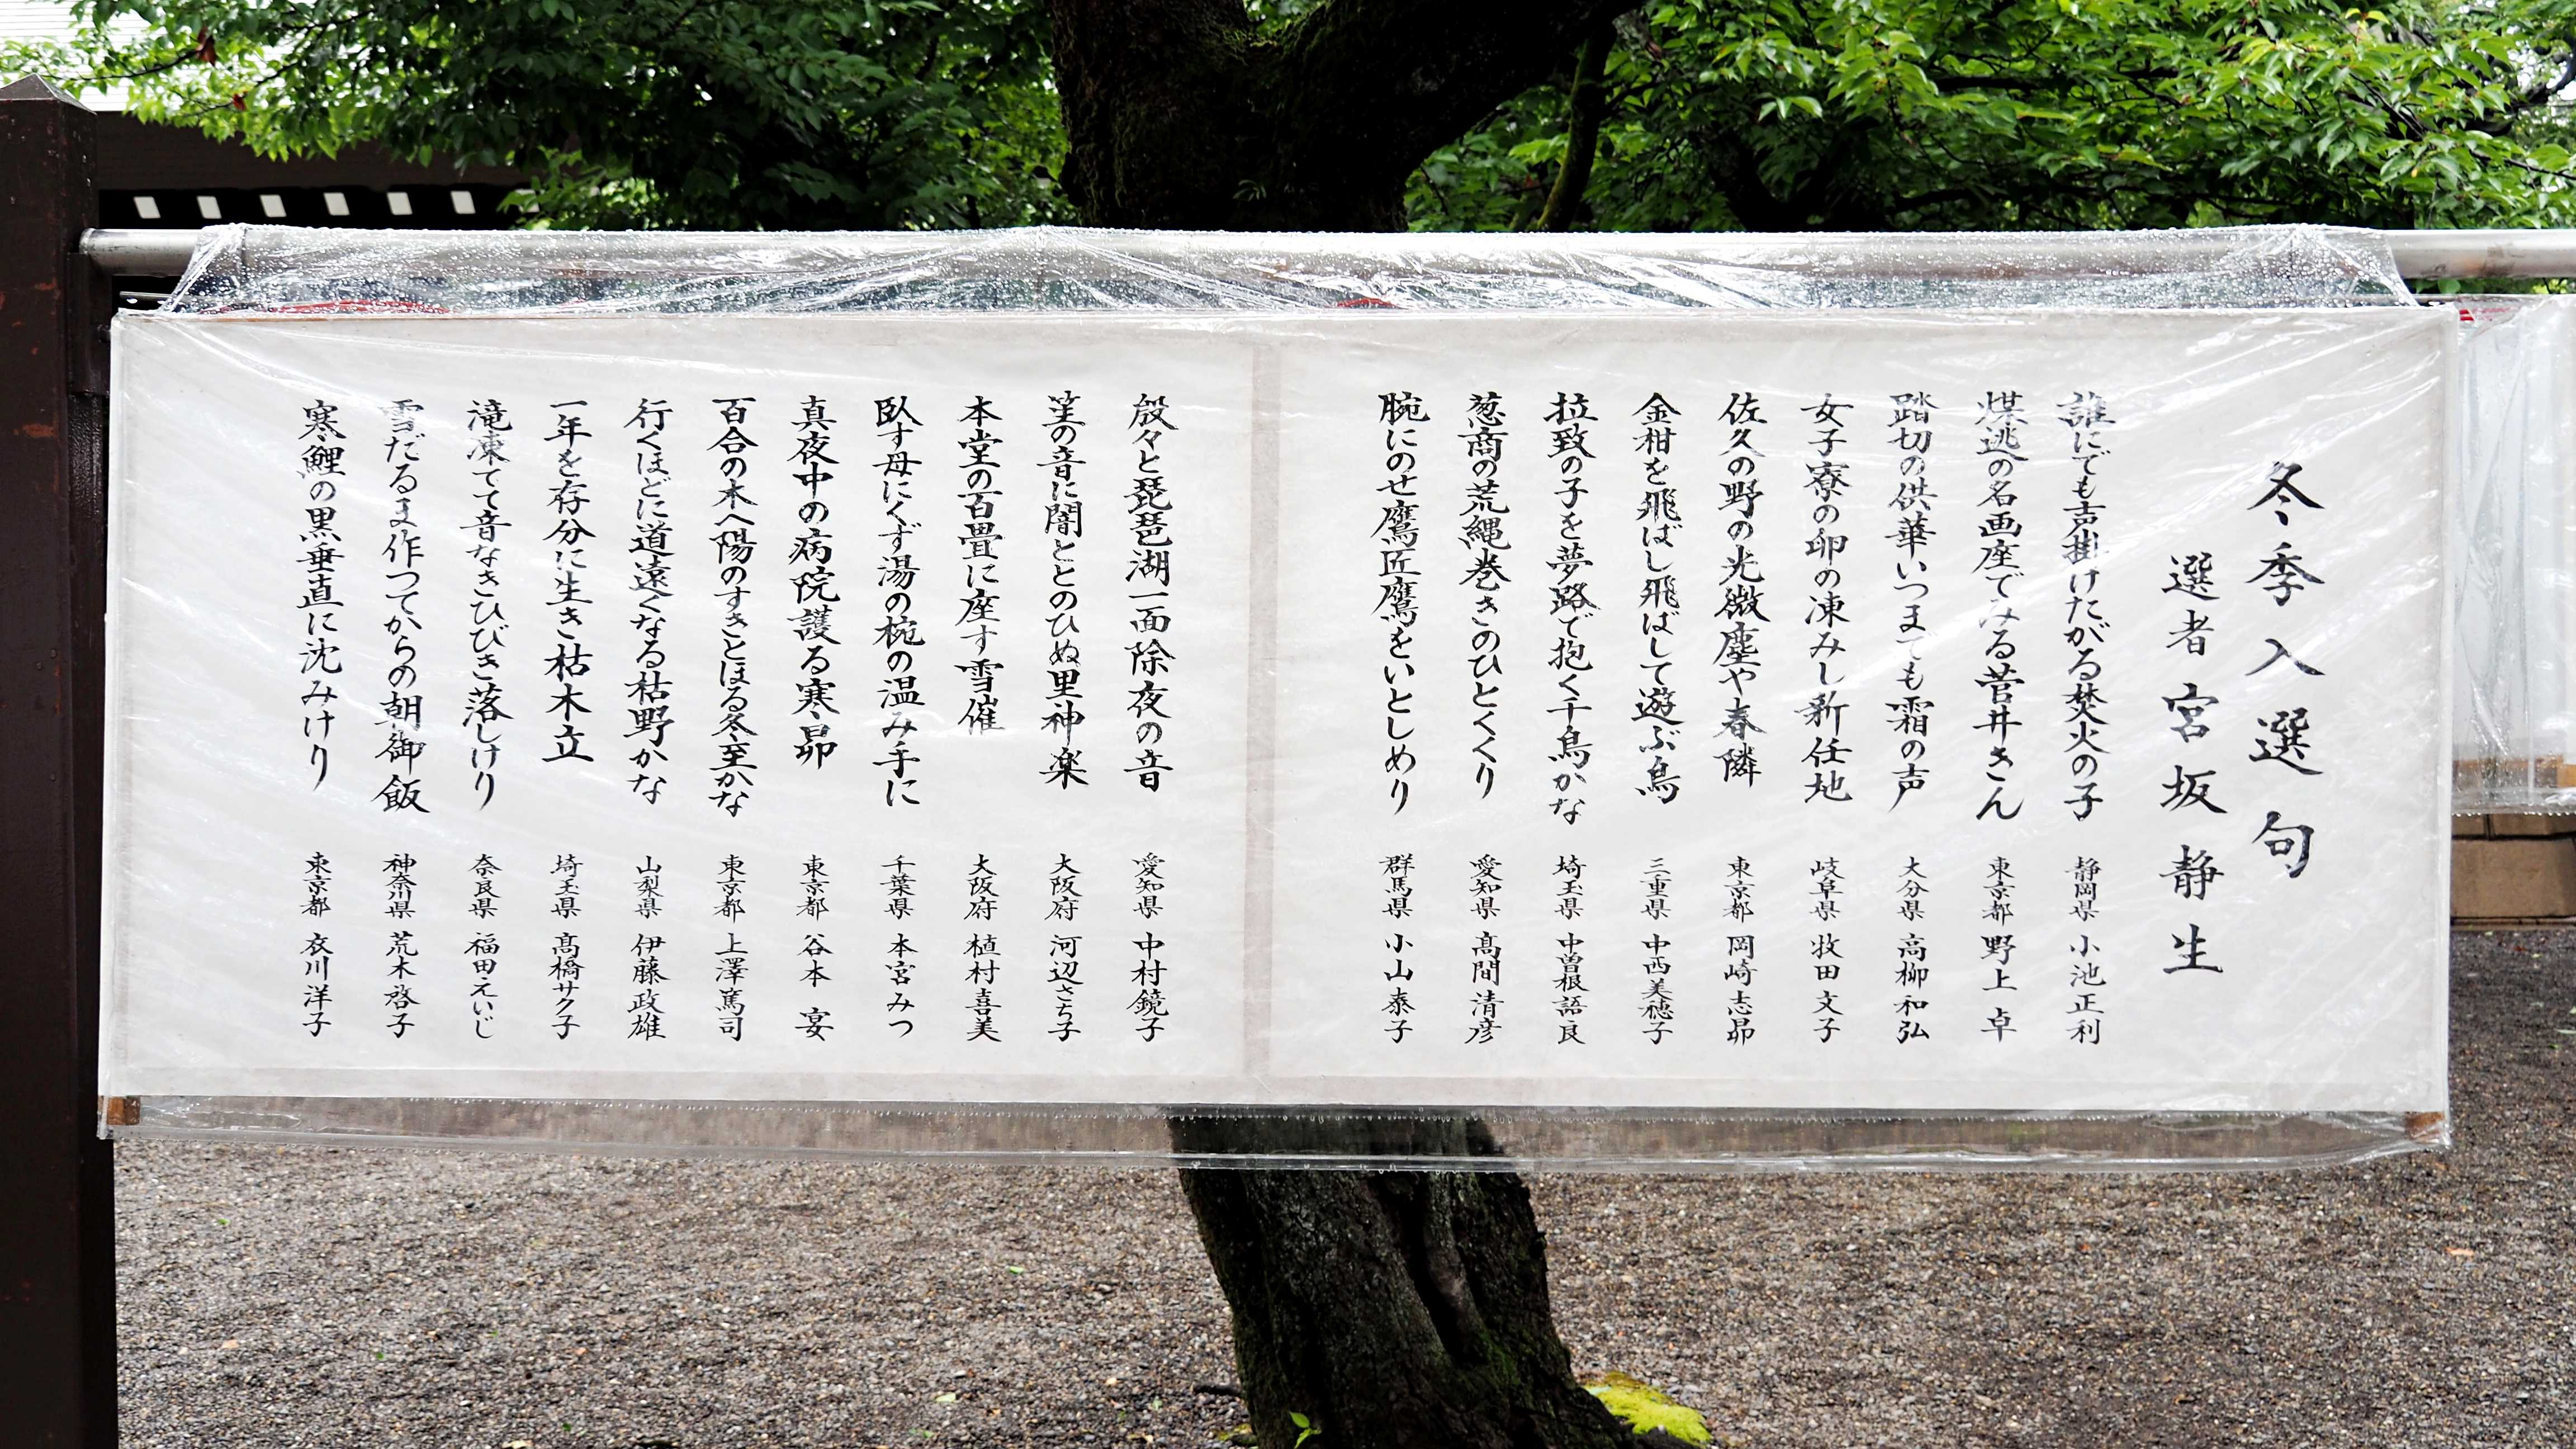 冬季入選句
選者 宮坂静生
誰にでも声掛けたがる焚火の子 静岡県 小池正利
煤逃の名画座でみる菅井きん 東京都 野上卓
踏切の供華いつまでも霜の声 大分県 高柳和弘
女子寮の卯の凍みし新任地 岐阜県 牧田文子
佐久の野の光微塵や春隣 東京都 岡崎志昴
金柑を飛ばし飛ばして遊ぶ鳥 三重県 中西美穂子
拉致の子を夢路で抱く千鳥かな 埼玉県 中曽根語良
葱商の荒縄巻きのひとくくり 愛知県 髙間清彦
腕にのせ鷹匠鷹をいとしめり 群馬県 小山泰子
殷々と琵琶湖一面除夜の音 愛知県 中村鏡子
笙の音に闇ととのひぬ里神楽 大阪府 河辺さち子
本堂の百畳に座す雪催 大阪府 植村喜美
臥す母にくず湯の椀の温み手に 千葉県 本宮みつ
真夜中の病院護る寒昴 東京都 谷本宴
百合の木へ陽のすきとほる冬至かな 東京都 上澤篤司
行くほどに道遠くなる枯野かな 山梨県 伊藤政雄
一年を存分に生き枯木立 埼玉県 髙橋サク子
滝凍てて音なきひびき落しけり 奈良県 福田えいじ
雪だるま作つてからの朝御飯 神奈川県 荒木啓子
寒鯉の黒垂直に沈みけり 東京都 衣川洋子